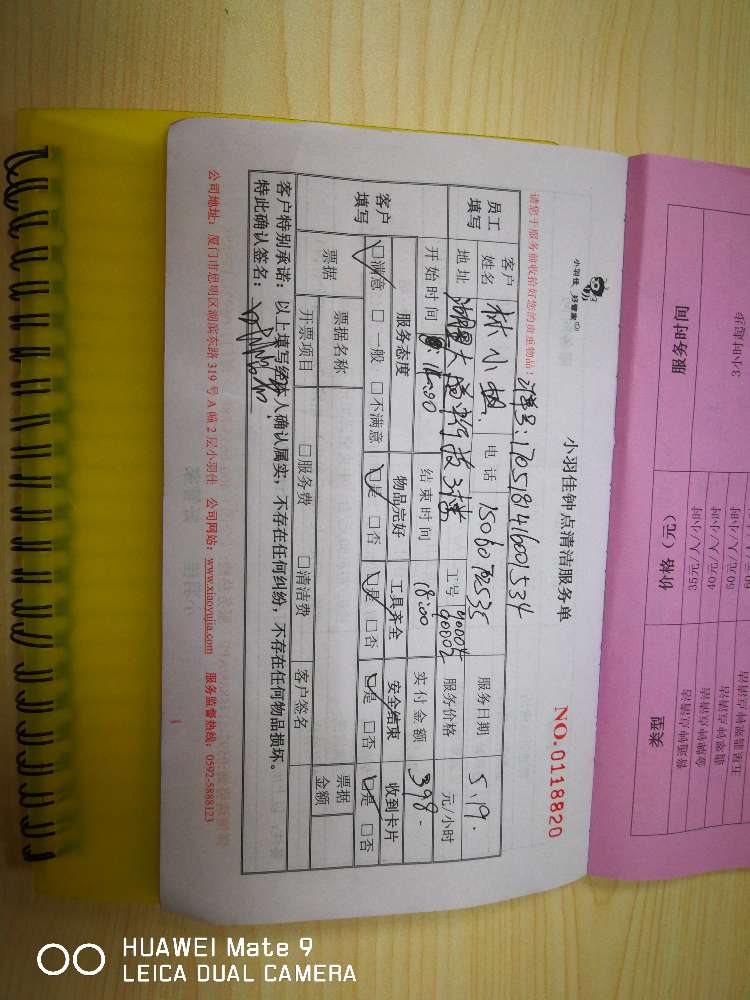 小羽佳 好管家
小羽佳钟点清洁服务单
NO.0118820
请您于服务前收拾好您的贵重物品！
单号：1705181416001534
员工填写 客户姓名 林小姐 电话 服务日期 5.19.
地址 3楼 工号 90002 服务价格 元/小时
开始时间 14:00 结束时间 18:00 实付金额 398.
客户填写 服务态度 物品完好 工具齐全 安全结束 收到卡片
☑满意 □一般 □不满意 ☑是 □否 ☑是 □否 ☑是 □否 ☑是 □否
票据 票据名称 票据金额
开票项目 □服务费 □清洁费 客户签名
客户特别承诺：以上填写经本人确认属实，不存在任何纠纷，不存在任何物品损坏。
特此确认签名：
公司地址：厦门市思明区湖滨东路319号A幢2层小羽佳 公司网站：www.xiaoyujia.com 服务监督热线：0592-5888123
服务时间 价格（元） 类型
3小时
35元/人/小时 普通钟点清洁
40元/人/小时
50元/人/小时
HUAWEI Mate 9
LEICA DUAL CAMERA